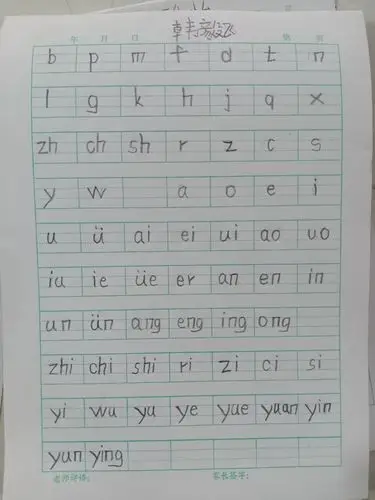 年 月 日 第 页
b p m f d t n
l g k h j q x
zh ch sh r z c s
y w a o e i
u ü ai ei ui ao uo
iu ie üe er an en in
un ün ang eng ing ong
zhi chi shi ri zi ci si
yi wu yu ye yue yuan yin
yun ying
老师评语: 家长签字: